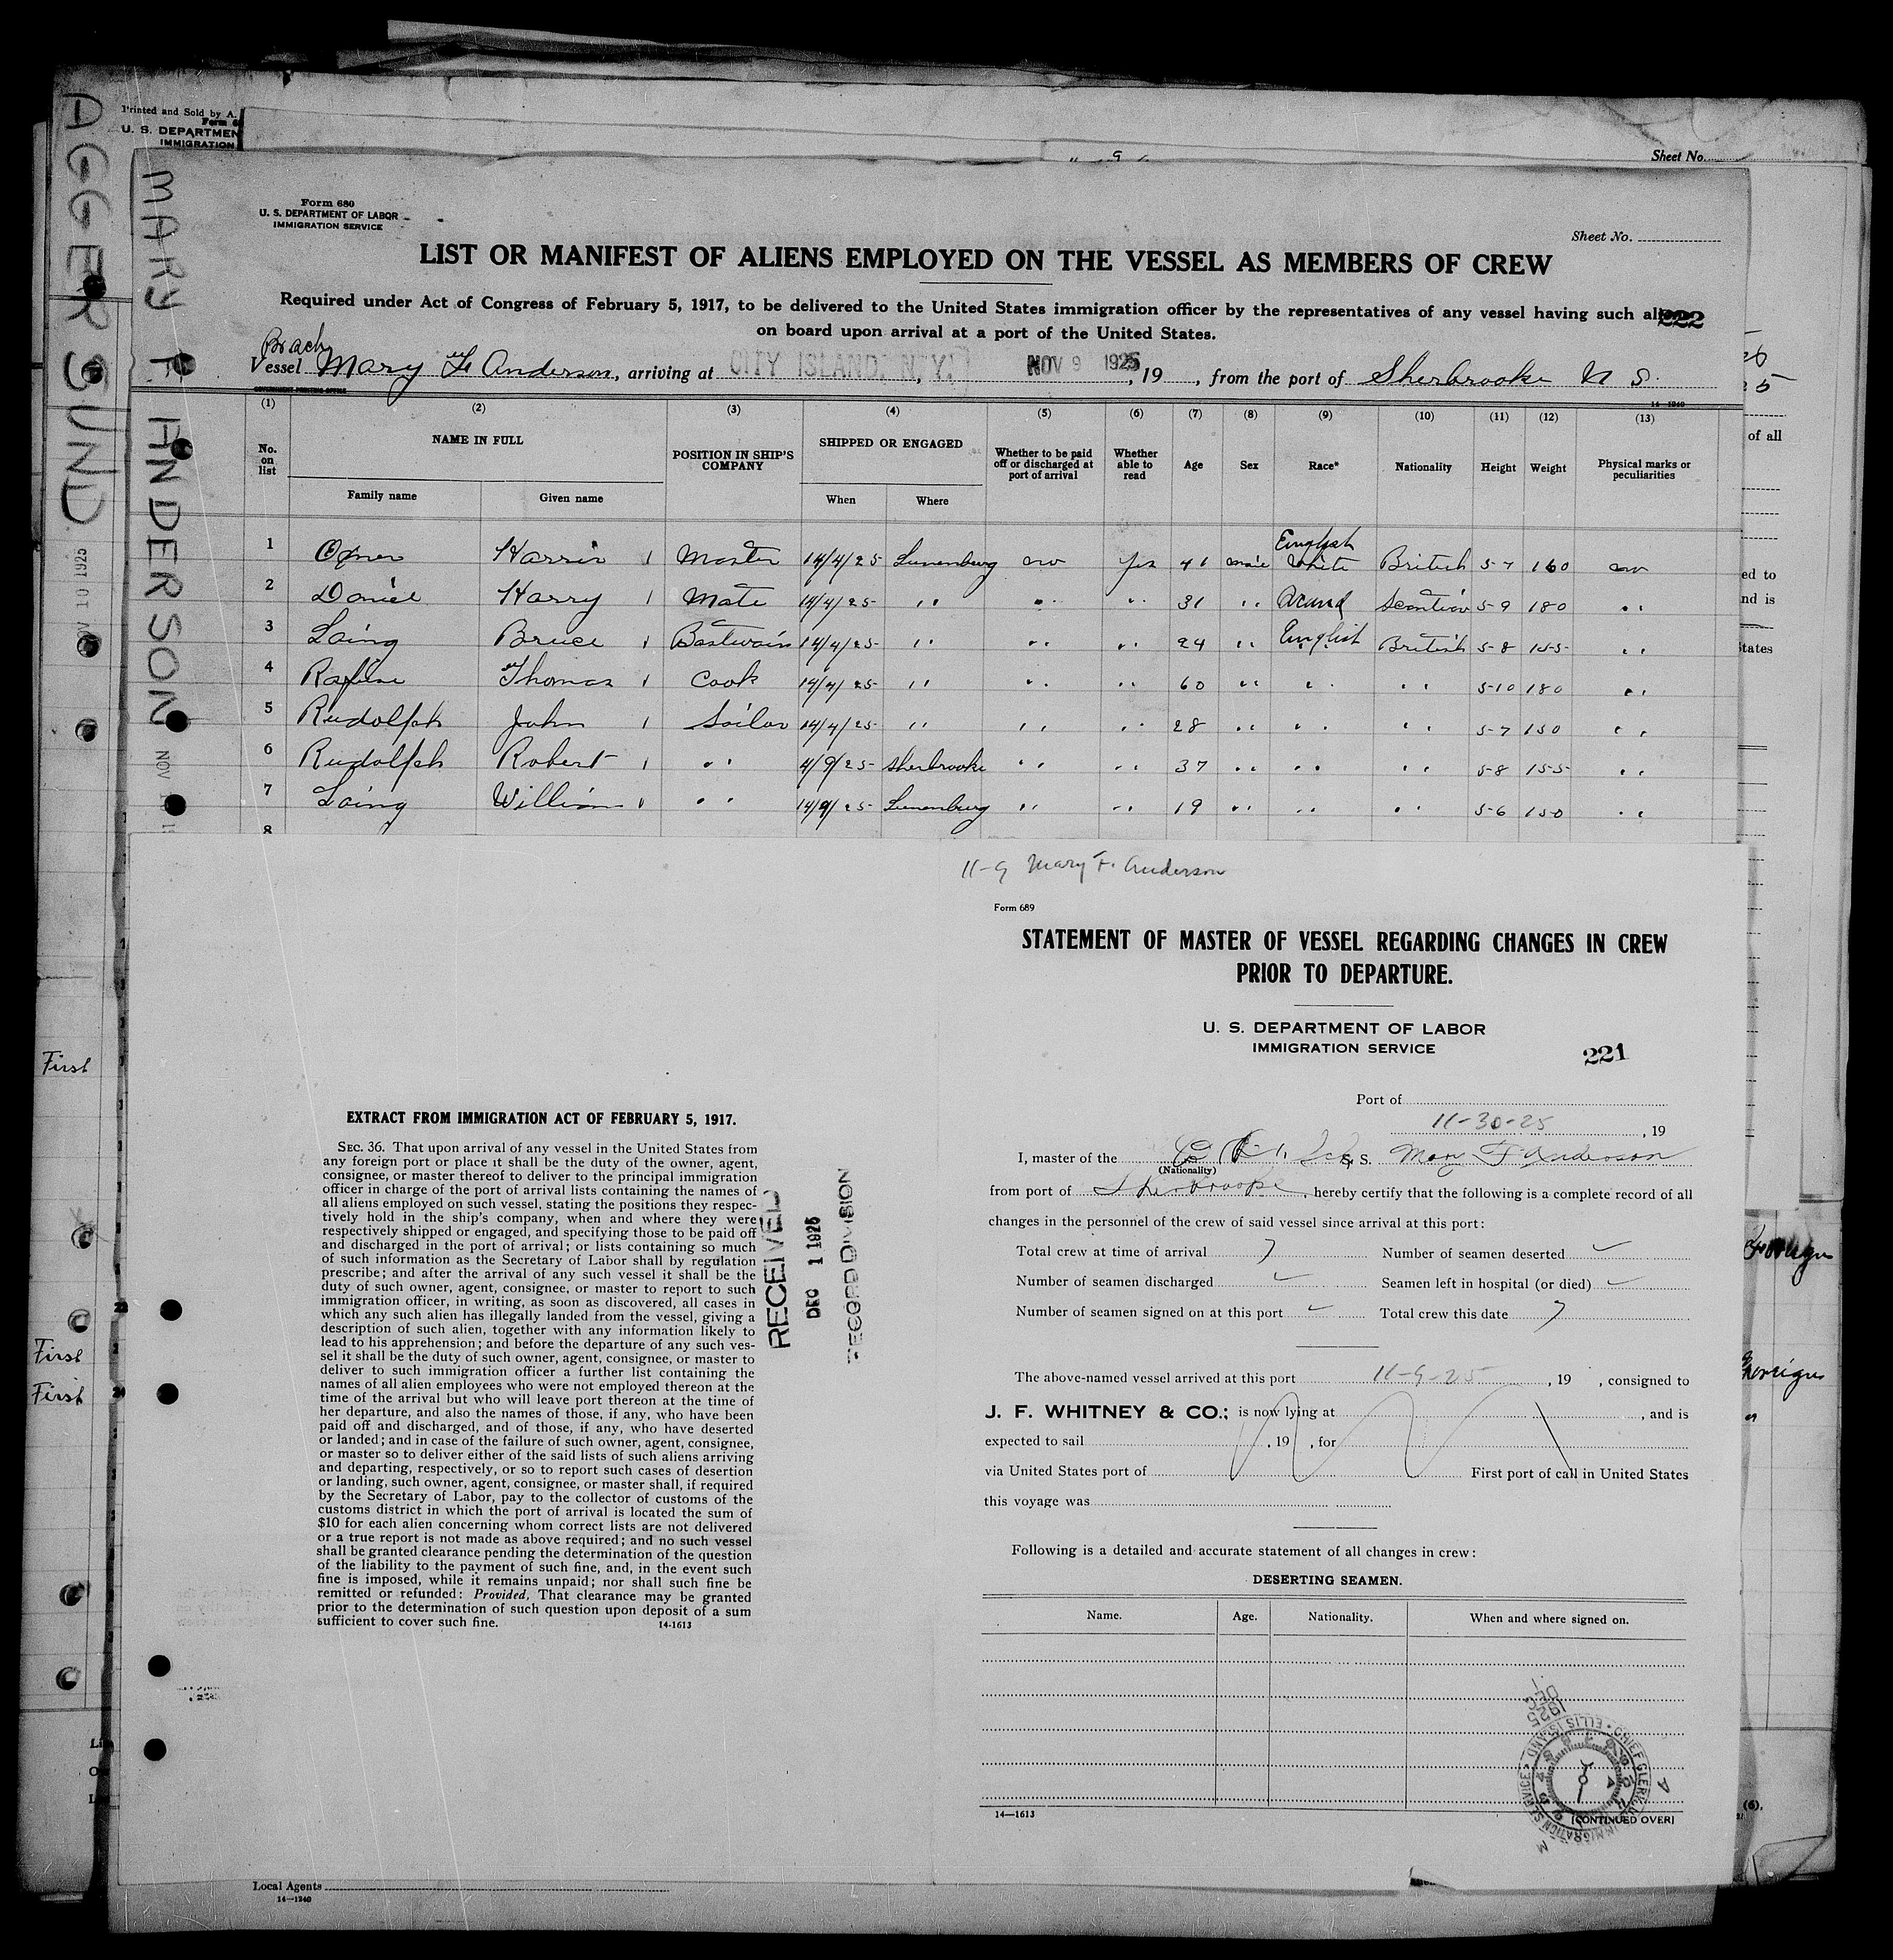 Printed and Sold by A.
U. S. DEPARTMEN
IMMIGRATION
Sheet No.
AGGERSUND
NOV 10 1925
MARY F. ANDERSON
NOV
Form 680
U. S. DEPARTMENT OF LABOR
IMMIGRATION SERVICE
Sheet No.
LIST OR MANIFEST OF ALIENS EMPLOYED ON THE VESSEL AS MEMBERS OF CREW
Required under Act of Congress of February 5, 1917, to be delivered to the United States immigration officer by the representatives of any vessel having such al 222
on board upon arrival at a port of the United States.
Vessel Mary F Anderson, arriving at CITY ISLAND, N. Y., NOV 9 1925, 19 , from the port of Sherbrooke N S.
GOVERNMENT PRINTING OFFICE 14-1240
(1) (2) (3) (4) (5) (6) (7) (8) (9) (10) (11) (12) (13)
No. on list NAME IN FULL POSITION IN SHIP'S COMPANY SHIPPED OR ENGAGED Whether to be paid off or discharged at port of arrival Whether able to read Age Sex Race* Nationality Height Weight Physical marks or peculiarities
Family name Given name When Where
1 Harris Master 14/4/25 Lunenburg no yes 41 male English White British 5-7 160 no
2 Daniel Harry Mate 14/4/25 " " " 31 " 5-9 180 "
3 Laing Bruce Boatswain 14/4/25 " " " 24 " English British 5-8 155 "
4 Rafuse Thomas Cook 14/4/25 " " " 60 " " " 5-10 180 "
5 Rudolph John Sailor 14/4/25 " " " 28 " " " 5-7 150 "
6 Rudolph Robert " 4/9/25 Sherbrooke " " 37 " " " 5-8 155 "
7 Laing William " 14/9/25 Lunenburg " " 19 " " " 5-6 150 "
8
11-9 Mary F. Anderson
Form 689
STATEMENT OF MASTER OF VESSEL REGARDING CHANGES IN CREW
PRIOR TO DEPARTURE.
U. S. DEPARTMENT OF LABOR
IMMIGRATION SERVICE
221
Port of
11-30-25, 19
I, master of the (Nationality) S. S. Mary F Anderson
from port of Sherbrooke, hereby certify that the following is a complete record of all
changes in the personnel of the crew of said vessel since arrival at this port:
Total crew at time of arrival 7 Number of seamen deserted
Number of seamen discharged Seamen left in hospital (or died)
Number of seamen signed on at this port Total crew this date 7
The above-named vessel arrived at this port 11-9-25, 19 , consigned to
J. F. WHITNEY & CO.; is now lying at , and is
expected to sail , 19 , for
via United States port of First port of call in United States
this voyage was
Following is a detailed and accurate statement of all changes in crew:
DESERTING SEAMEN.
Name. Age. Nationality. When and where signed on.
14—1613
[CONTINUED OVER]
1925 DEC 1
CHIEF CLERK IMMIGRATION SERVICE ELLIS ISLAND
EXTRACT FROM IMMIGRATION ACT OF FEBRUARY 5, 1917.
SEC. 36. That upon arrival of any vessel in the United States from
any foreign port or place it shall be the duty of the owner, agent,
consignee, or master thereof to deliver to the principal immigration
officer in charge of the port of arrival lists containing the names of
all aliens employed on such vessel, stating the positions they respec-
tively hold in the ship's company, when and where they were
respectively shipped or engaged, and specifying those to be paid off
and discharged in the port of arrival; or lists containing so much
of such information as the Secretary of Labor shall by regulation
prescribe; and after the arrival of any such vessel it shall be the
duty of such owner, agent, consignee, or master to report to such
immigration officer, in writing, as soon as discovered, all cases in
which any such alien has illegally landed from the vessel, giving a
description of such alien, together with any information likely to
lead to his apprehension; and before the departure of any such ves-
sel it shall be the duty of such owner, agent, consignee, or master to
deliver to such immigration officer a further list containing the
names of all alien employees who were not employed thereon at the
time of the arrival but who will leave port thereon at the time of
her departure, and also the names of those, if any, who have been
paid off and discharged, and of those, if any, who have deserted
or landed; and in case of the failure of such owner, agent, consignee,
or master so to deliver either of the said lists of such aliens arriving
and departing, respectively, or so to report such cases of desertion
or landing, such owner, agent, consignee, or master shall, if required
by the Secretary of Labor, pay to the collector of customs of the
customs district in which the port of arrival is located the sum of
$10 for each alien concerning whom correct lists are not delivered
or a true report is not made as above required; and no such vessel
shall be granted clearance pending the determination of the question
of the liability to the payment of such fine, and, in the event such
fine is imposed, while it remains unpaid; nor shall such fine be
remitted or refunded: Provided, That clearance may be granted
prior to the determination of such question upon deposit of a sum
sufficient to cover such fine.
14-1613
RECEIVED
DEC 1 1925
RECORD DIVISION
First
First
First
of all
ed to
nd is
States
(6).
Local Agents
14—1240